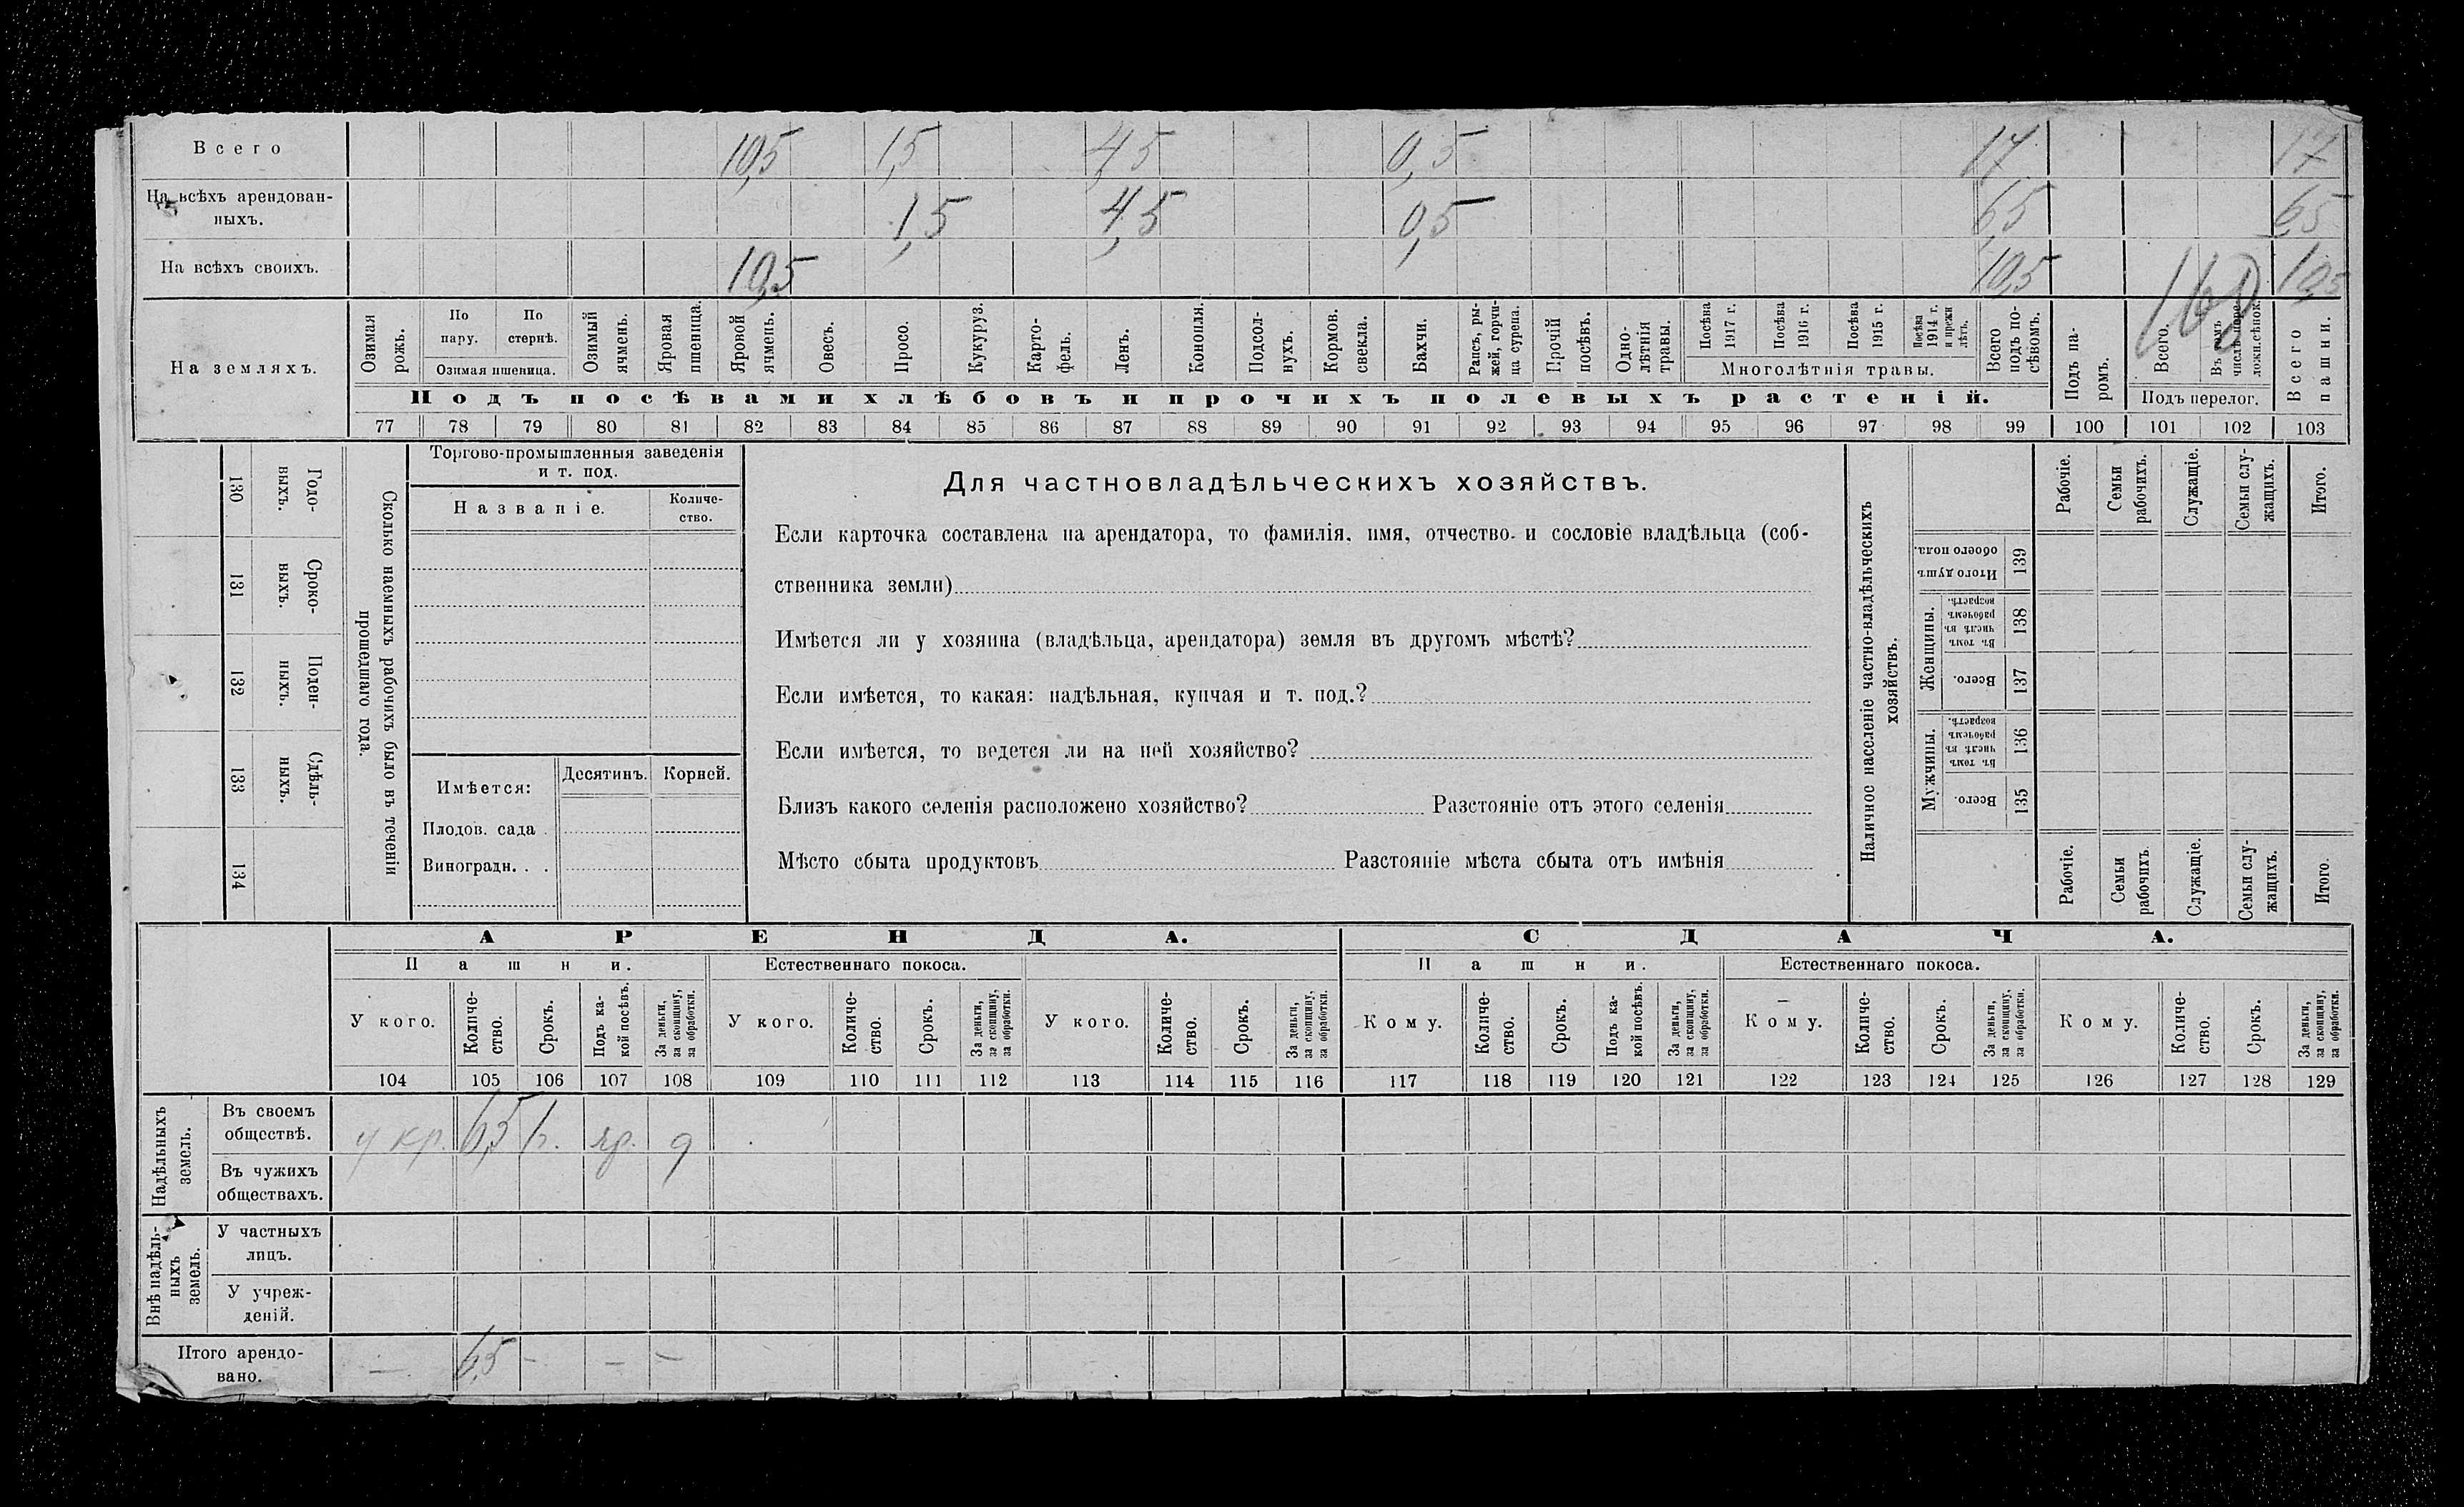 Всего 10,5 1,5 4,5 0,5 17 17
На всѣхъ арендован-
ныхъ. 1,5 4,5 0,5 6,5 6,5
На всѣхъ своихъ. 10,5 10,5 10,5
160
На земляхъ.
Озимая рожь.
По пару.
По стернѣ.
Озимая пшеница.
Озимый ячмень.
Яровая пшеница.
Яровой ячмень.
Овесъ.
Просо.
Кукуруз.
Карто-
фель.
Ленъ.
Конопля.
Подсол-
нухъ.
Кормов.
свекла.
Бахчи.
Рапсъ, ры-
жей, горчи-
ца сурепа.
Прочій
посѣвъ.
Одно-
лѣтнія
травы.
Посѣва
1917 г.
Посѣва
1916 г.
Посѣва
1915 г.
Посѣва
1914 г.
и прежн
лѣтъ.
Многолѣтнія травы.
Всего
подъ по-
сѣвомъ.
Подъ па-
ромъ.
Всего.
Въ томъ
числѣ
Подъ перелог.
Всего
пашни.
Подъ посѣвами хлѣбовъ и прочихъ полевыхъ растеній.
77 78 79 80 81 82 83 84 85 86 87 88 89 90 91 92 93 94 95 96 97 98 99 100 101 102 103
Годо-
выхъ.
130
Сроко-
выхъ.
131
Поден-
ныхъ.
132
Сдѣль-
ныхъ.
133
134
Сколько наемныхъ рабочихъ было въ теченіи
прошедшаго года.
Торгово-промышленныя заведенія
и т. под.
Названіе.
Количе-
ство.
Имѣется:
Десятинъ.
Корней.
Плодов. сада .
Виноградн. . .
Для частновладѣльческихъ хозяйствъ.
Если карточка составлена на арендатора, то фамилія, имя, отчество и сословіе владѣльца (соб-
ственника земли)
Имѣется ли у хозяина (владѣльца, арендатора) земля въ другомъ мѣстѣ?
Если имѣется, то какая: надѣльная, купчая и т. под.?
Если имѣется, то ведется ли на ней хозяйство?
Близъ какого селенія расположено хозяйство? Разстояніе отъ этого селенія
Мѣсто сбыта продуктовъ Разстояніе мѣста сбыта отъ имѣнія
Наличное населеніе частно-владѣльческихъ
хозяйствъ.
Рабочіе.
Семьи
рабочихъ.
Служащіе.
Семьи слу-
жащихъ.
Итого.
Итого душъ
обоего пола.
139
Женщины.
Въ томъ
числѣ въ
рабочемъ
возрастѣ.
138
Всего.
137
Мужчины.
Въ томъ
числѣ въ
рабочемъ
возрастѣ.
136
Всего.
135
Рабочіе.
Семьи
рабочихъ
Служащіе.
Семьи слу-
жащихъ.
Итого.
АРЕНДА. СДАЧА.
Пашни. Естественнаго покоса. Пашни. Естественнаго покоса.
У кого.
Количе-
ство.
Срокъ.
Подъ ка-
кой посѣвъ.
За деньги,
за скопщину,
за обработки.
У кого.
Количе-
ство.
Срокъ.
За деньги,
за скопщину,
за обработки.
У кого.
Количе-
ство.
Срокъ.
За деньги,
за скопщину,
за обработки.
Кому.
Количе-
ство.
Срокъ.
Подъ ка-
кой посѣвъ.
За деньги,
за скопщину,
за обработки.
Кому.
Количе-
ство.
Срокъ.
За деньги,
за скопщину,
за обработки.
Кому.
Количе-
ство.
Срокъ.
За деньги,
за скопщину,
за обработки.
104 105 106 107 108 109 110 111 112 113 114 115 116 117 118 119 120 121 122 123 124 125 126 127 128 129
Надѣльныхъ
земель.
Въ своемъ
обществѣ. у кр. 6,5 1г. яр. д
Въ чужихъ
обществахъ.
Внѣ надѣль-
ныхъ
земель.
У частныхъ
лицъ.
У учреж-
деній.
Итого арендо-
вано. — 6,5 — — —